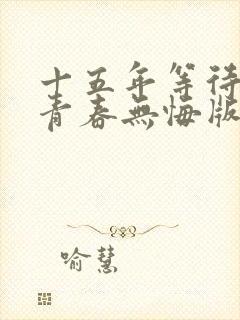 十五年等待
青春無悔版
喻慧